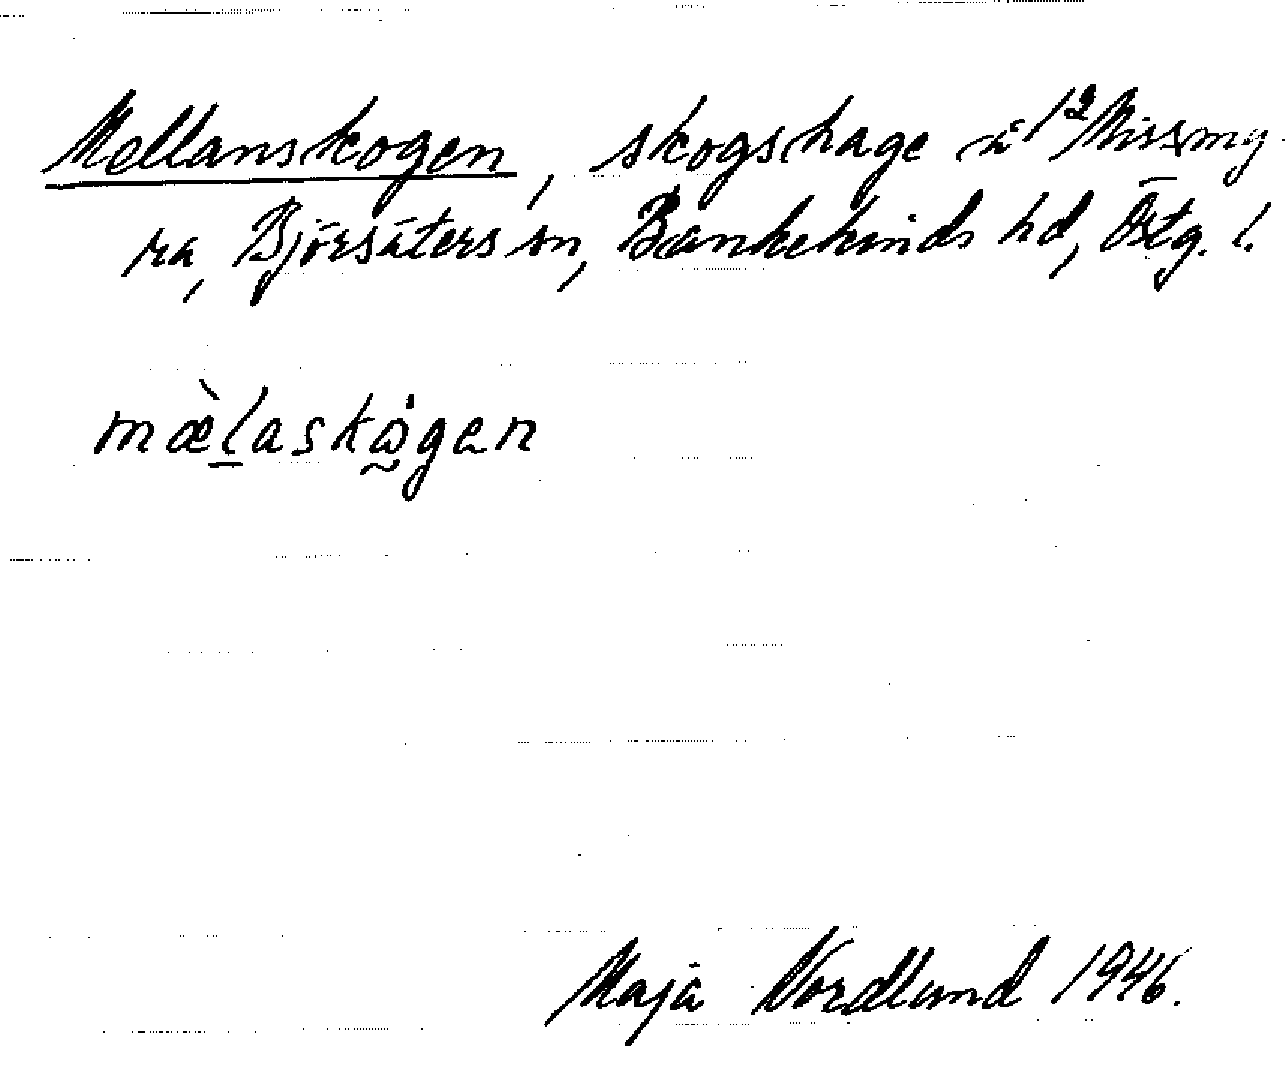 Mellanskogen, skogshage i 1² Missmy-
ra, Björsäters sn, Bankekinds hd, Östg. l.
mæ̀l̲askɷ̰̇gen
Maja Nordlund 1946.